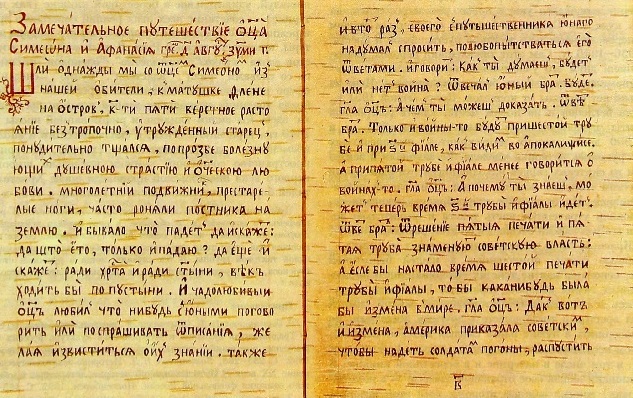 Замечательное путешествїе оц҃а
Симеѡна и Афанасїя гре҃. д҃ авгу҃. зуми т.
Шли однажды мы со ѿц҃ем Симеоном из
нашей обители, к матушке Алене
на остров, к҃-ти пяти веречное расто
янїе безтропочно, утруждѐнный старец,
понудительно тщался, по прозьбе болѐзну
ющих душевною страстїю и ѻческою лю
бови. многолетнїй подвижник, престаре
лые ноги, часто роняли постника на
землю. и бывало что падет да искаже:
да што ето, только и падаю? да еще и
скаже: ради хр҃та и ради ст҃ыни, векъ
ходить бы по пустыни. и чадолюбивый
оц҃ъ любил что нибудь с юными погово
рить или поспрашивать ѿписанїя, же
лая извиститься о их знанїи. также
и вто раз, своего спутешественника юнаго
надумал спросить, полюбопытствоваться его
ѿветами. и говори: как ты думаеш, будет
или нет война? ѿвечал юный бра. буде.
гл҃а оц҃ъ: а чем ты можеш доказать. ѿве
бра. только и войны-то буду при шестой тру
бе и при ѕ҃ фїале, как види во апокалипсисе.
а при пятой трубе и фїале менее говорится о
воинах-то. гл҃а оц҃ъ: а почему ты знаеш, мо
жет теперь время ѕ҃ трубы и фїалы идет.
ѿве бра: ѿрешенїе пятыя печати и пя
тая труба знаменую советскую власть:
а если бы настало время шестой печати
трубы и фїалы, то бы какая нибудь была
бы измена в мире. гл҃а оц҃ъ: дак вот
и измена, америка приказала советским,
чтобы надеть солдатам погоны, распустить
в҃